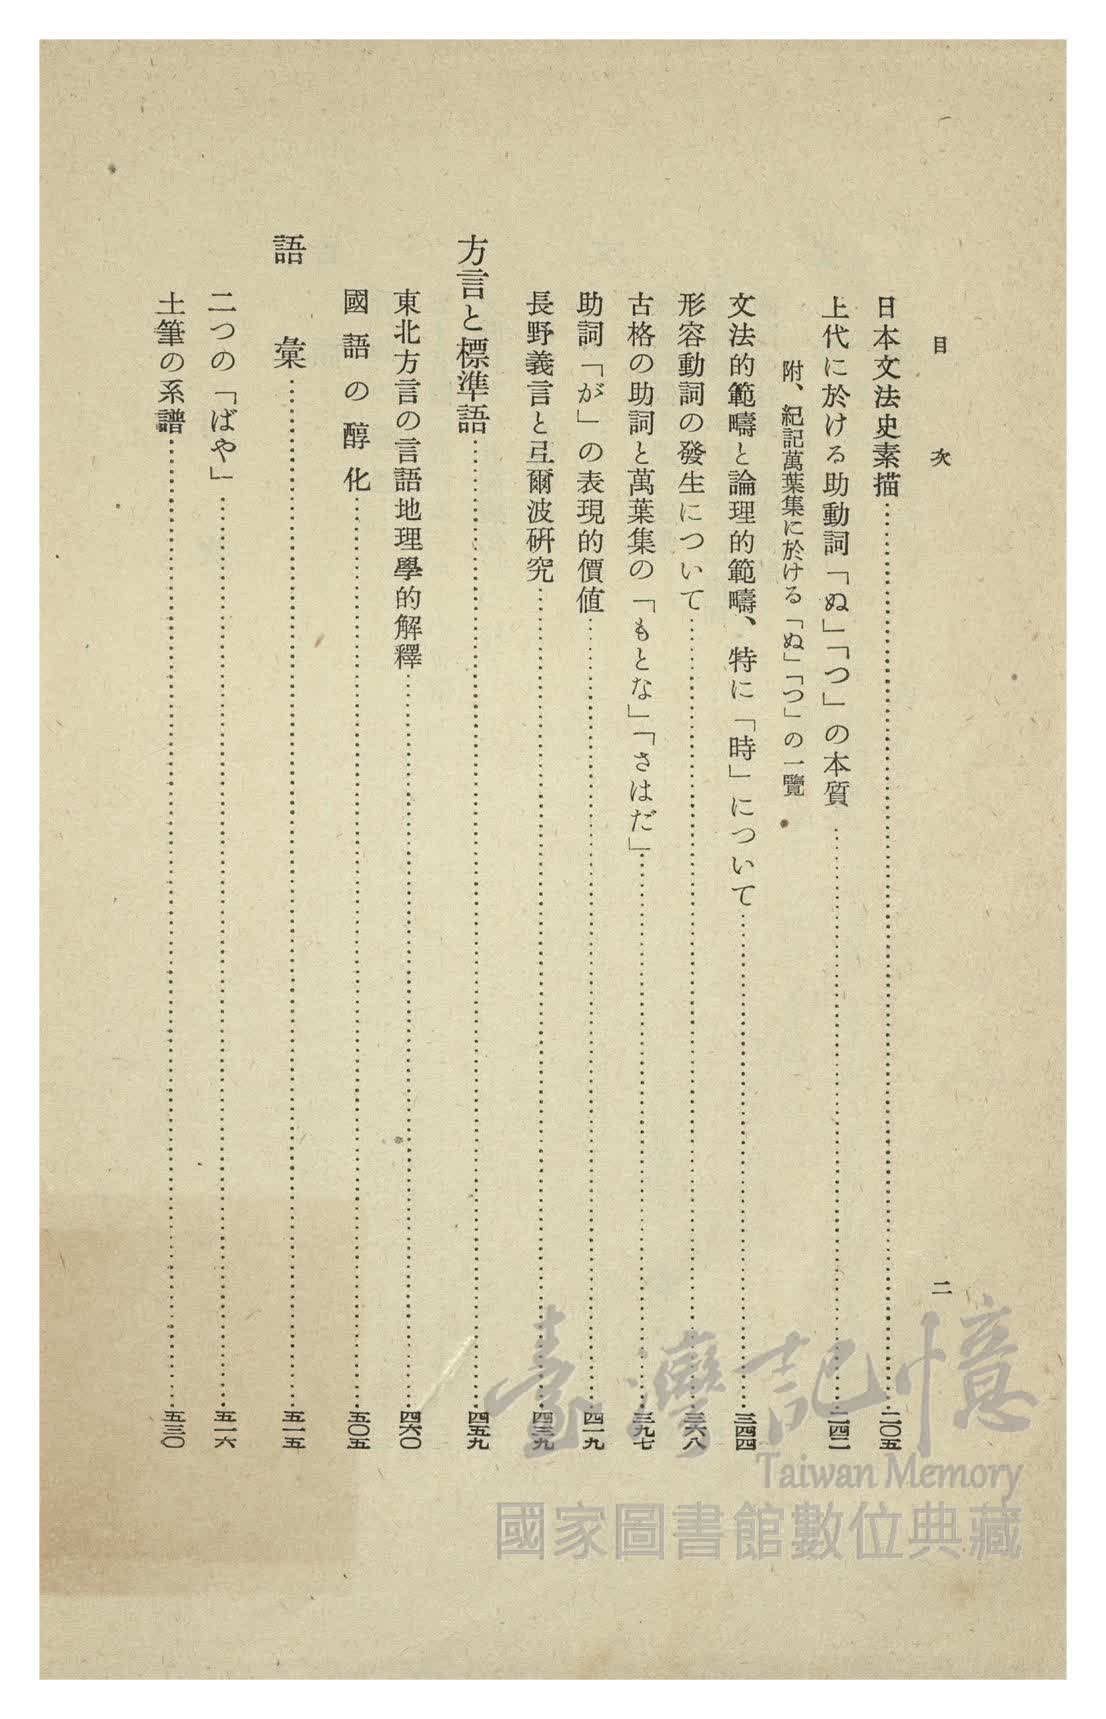 目次
二
日本文法史素描…二〇五
上代に於ける助動詞「ぬ」「つ」の本質…二四二
附、紀記萬葉集に於ける「ぬ」「つ」の一覽
文法的範疇と論理的範疇、特に「時」について…三四四
形容動詞の發生について…三六八
古格の助詞と萬葉集の「もとな」「さはだ」…三九七
助詞「が」の表現的價値…四一九
長野義言と弖爾波硏究…四三九
方言と標準語…四五九
東北方言の言語地理學的解釋…四六〇
國語の醇化…五〇五
語彙…五一五
二つの「ばや」…五一六
土筆の系譜…五三〇
臺灣記憶
Taiwan Memory
國家圖書館數位典藏